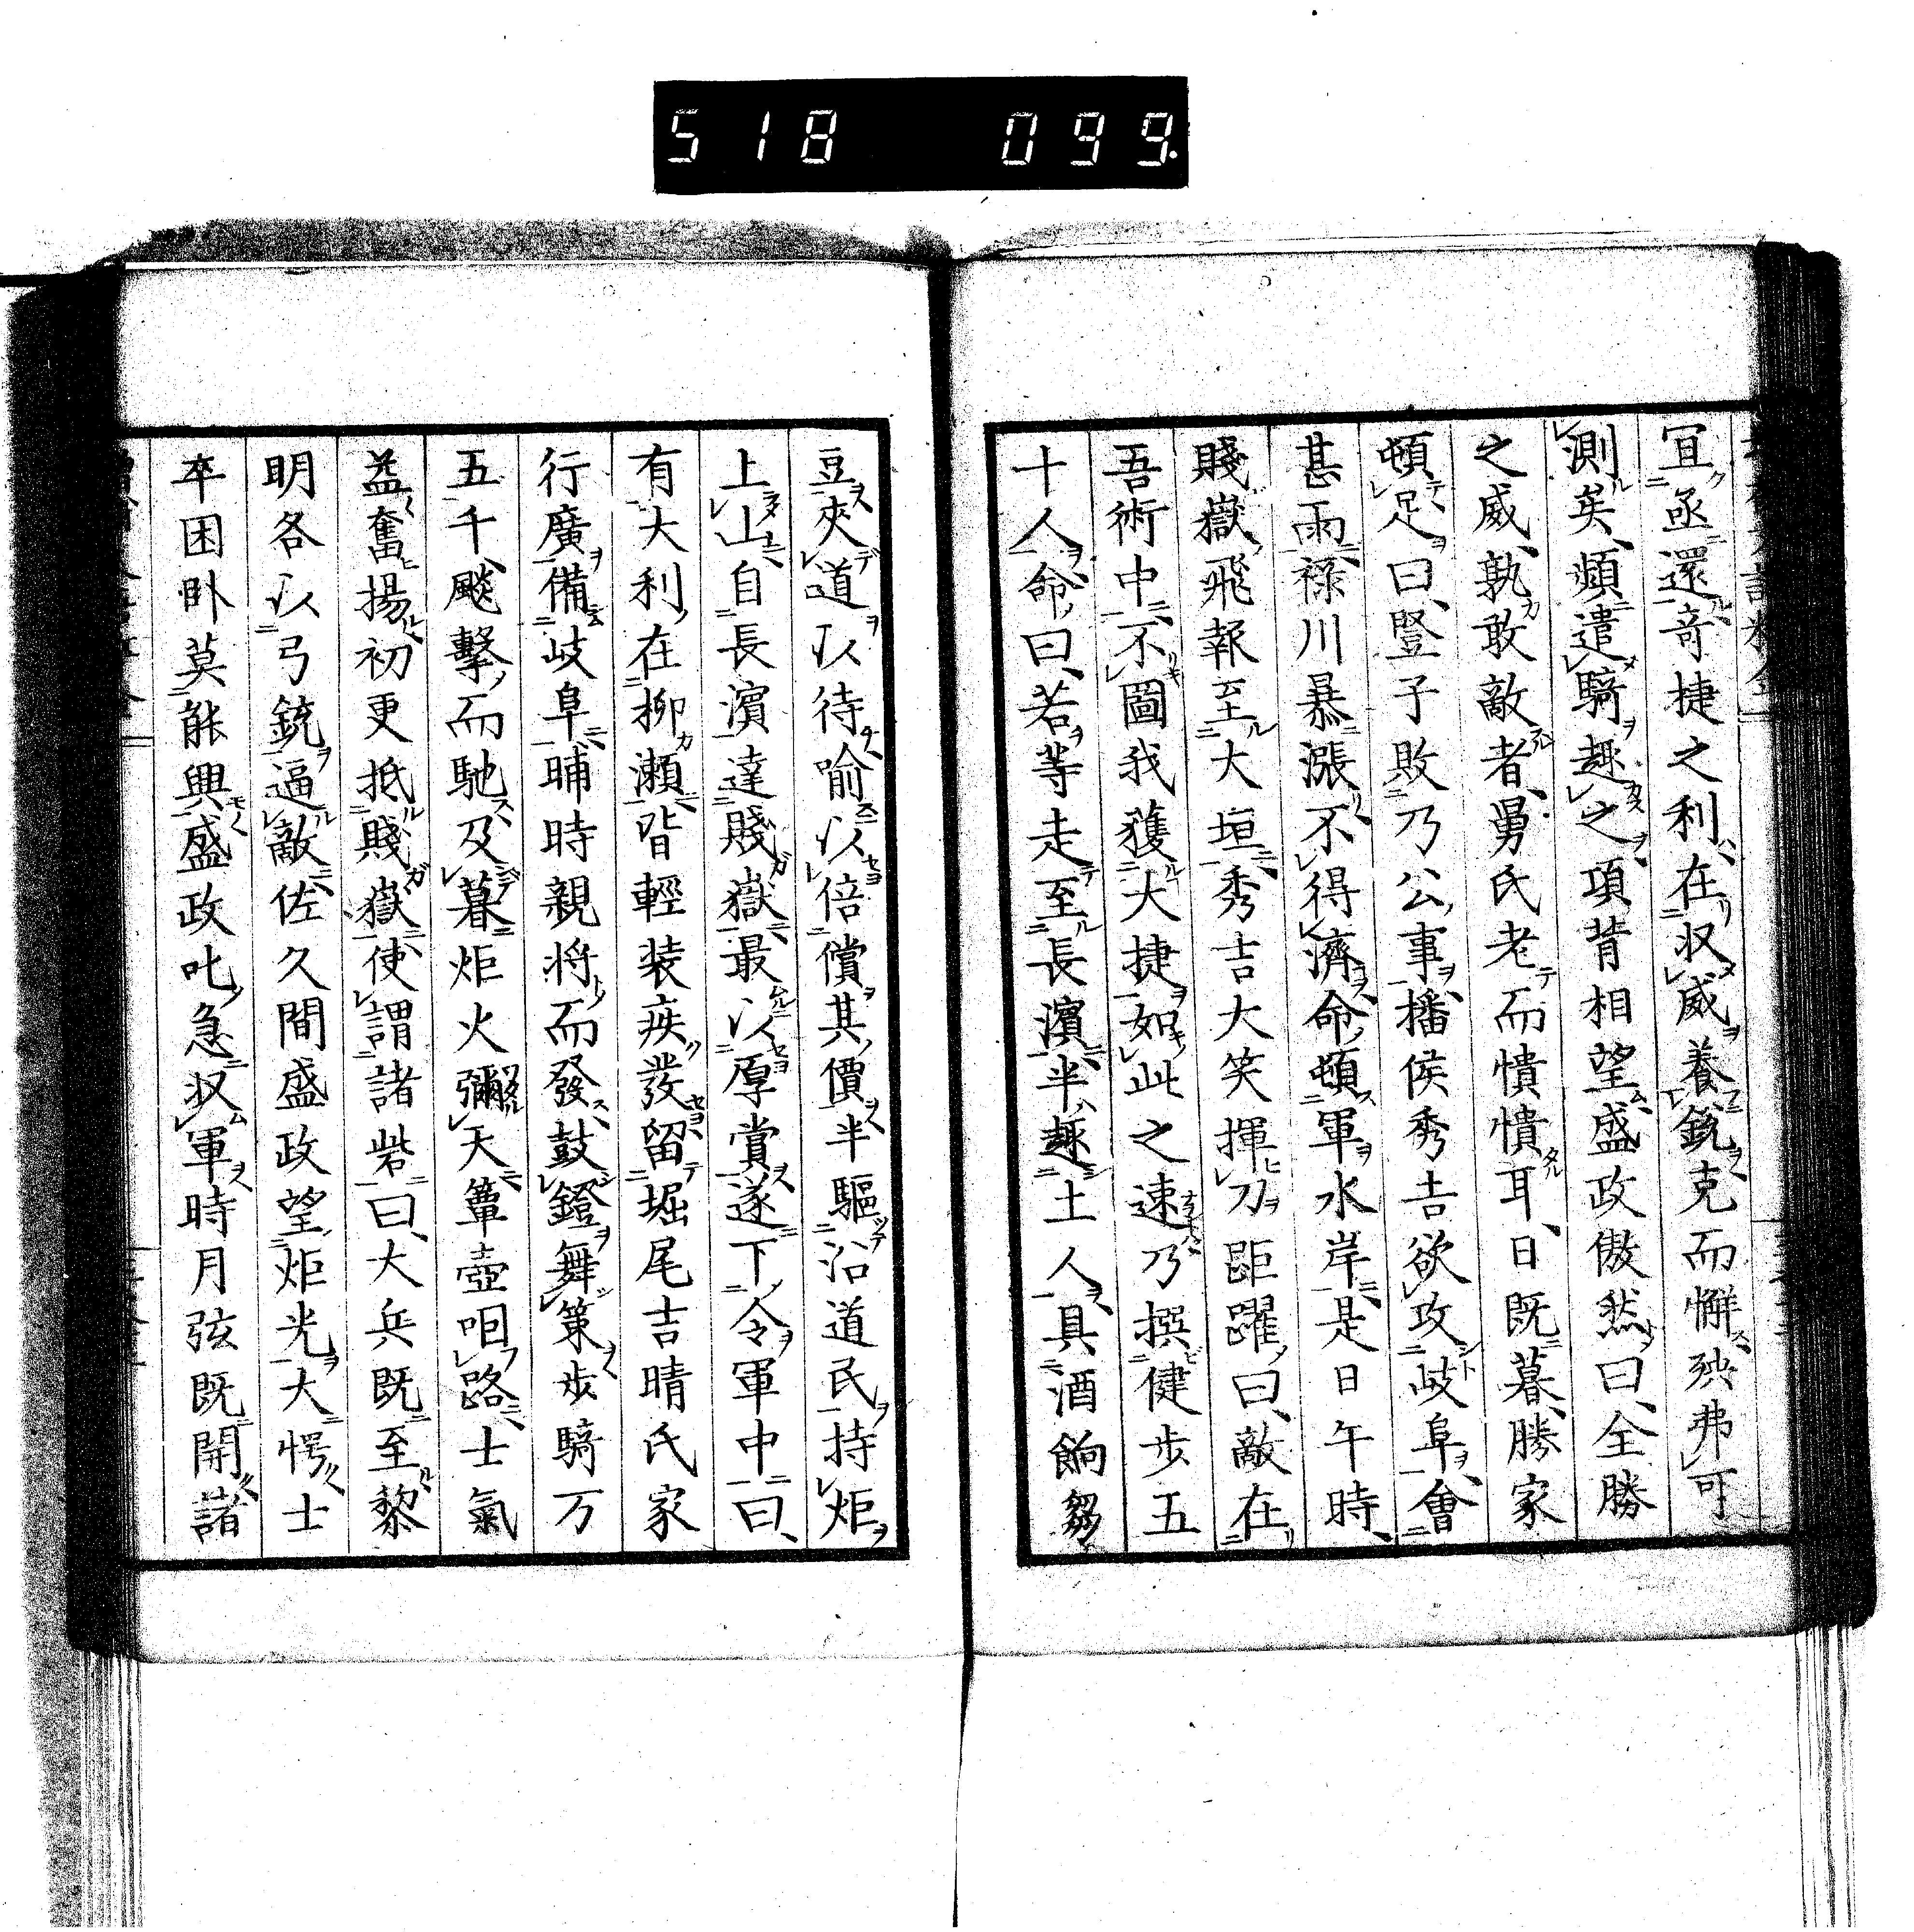 518 099.
宜亟還奇捷之利在収威養銳克而懈殃弗可
測矣頻遣騎趣之項背相望盛政傲然曰全勝
之威孰敢敵者舅氏老而憒憒耳日既暮勝家
頓足曰豎子敗乃公事播侯秀吉欲攻岐阜會
甚雨禄川暴漲不得濟命頓軍水岸是日午時
賤嶽飛報至大垣秀吉大笑揮刀距躍曰敵在
吾術中不圖我獲大捷如此之速乃撰健歩五
十人命曰若等走至長濱半趣土人具酒餉芻
豆夾道以待喻以倍償其價半驅沿道民持炬
上山自長濱達賤嶽最以厚賞遂下令軍中曰
有大利在柳瀬皆輕装疾發留堀尾吉晴氏家
行廣備岐阜晡時親将而發鼓鐙舞策歩騎万
五千飈擊而馳及暮炬火彌天簞壺咽路士氣
益奮揚初更抵賤嶽使謂諸砦曰大兵既至黎
明各以弓銃逼敵佐久間盛政望炬光大愕士
卒困臥莫能興盛政叱急収軍時月弦既開諸